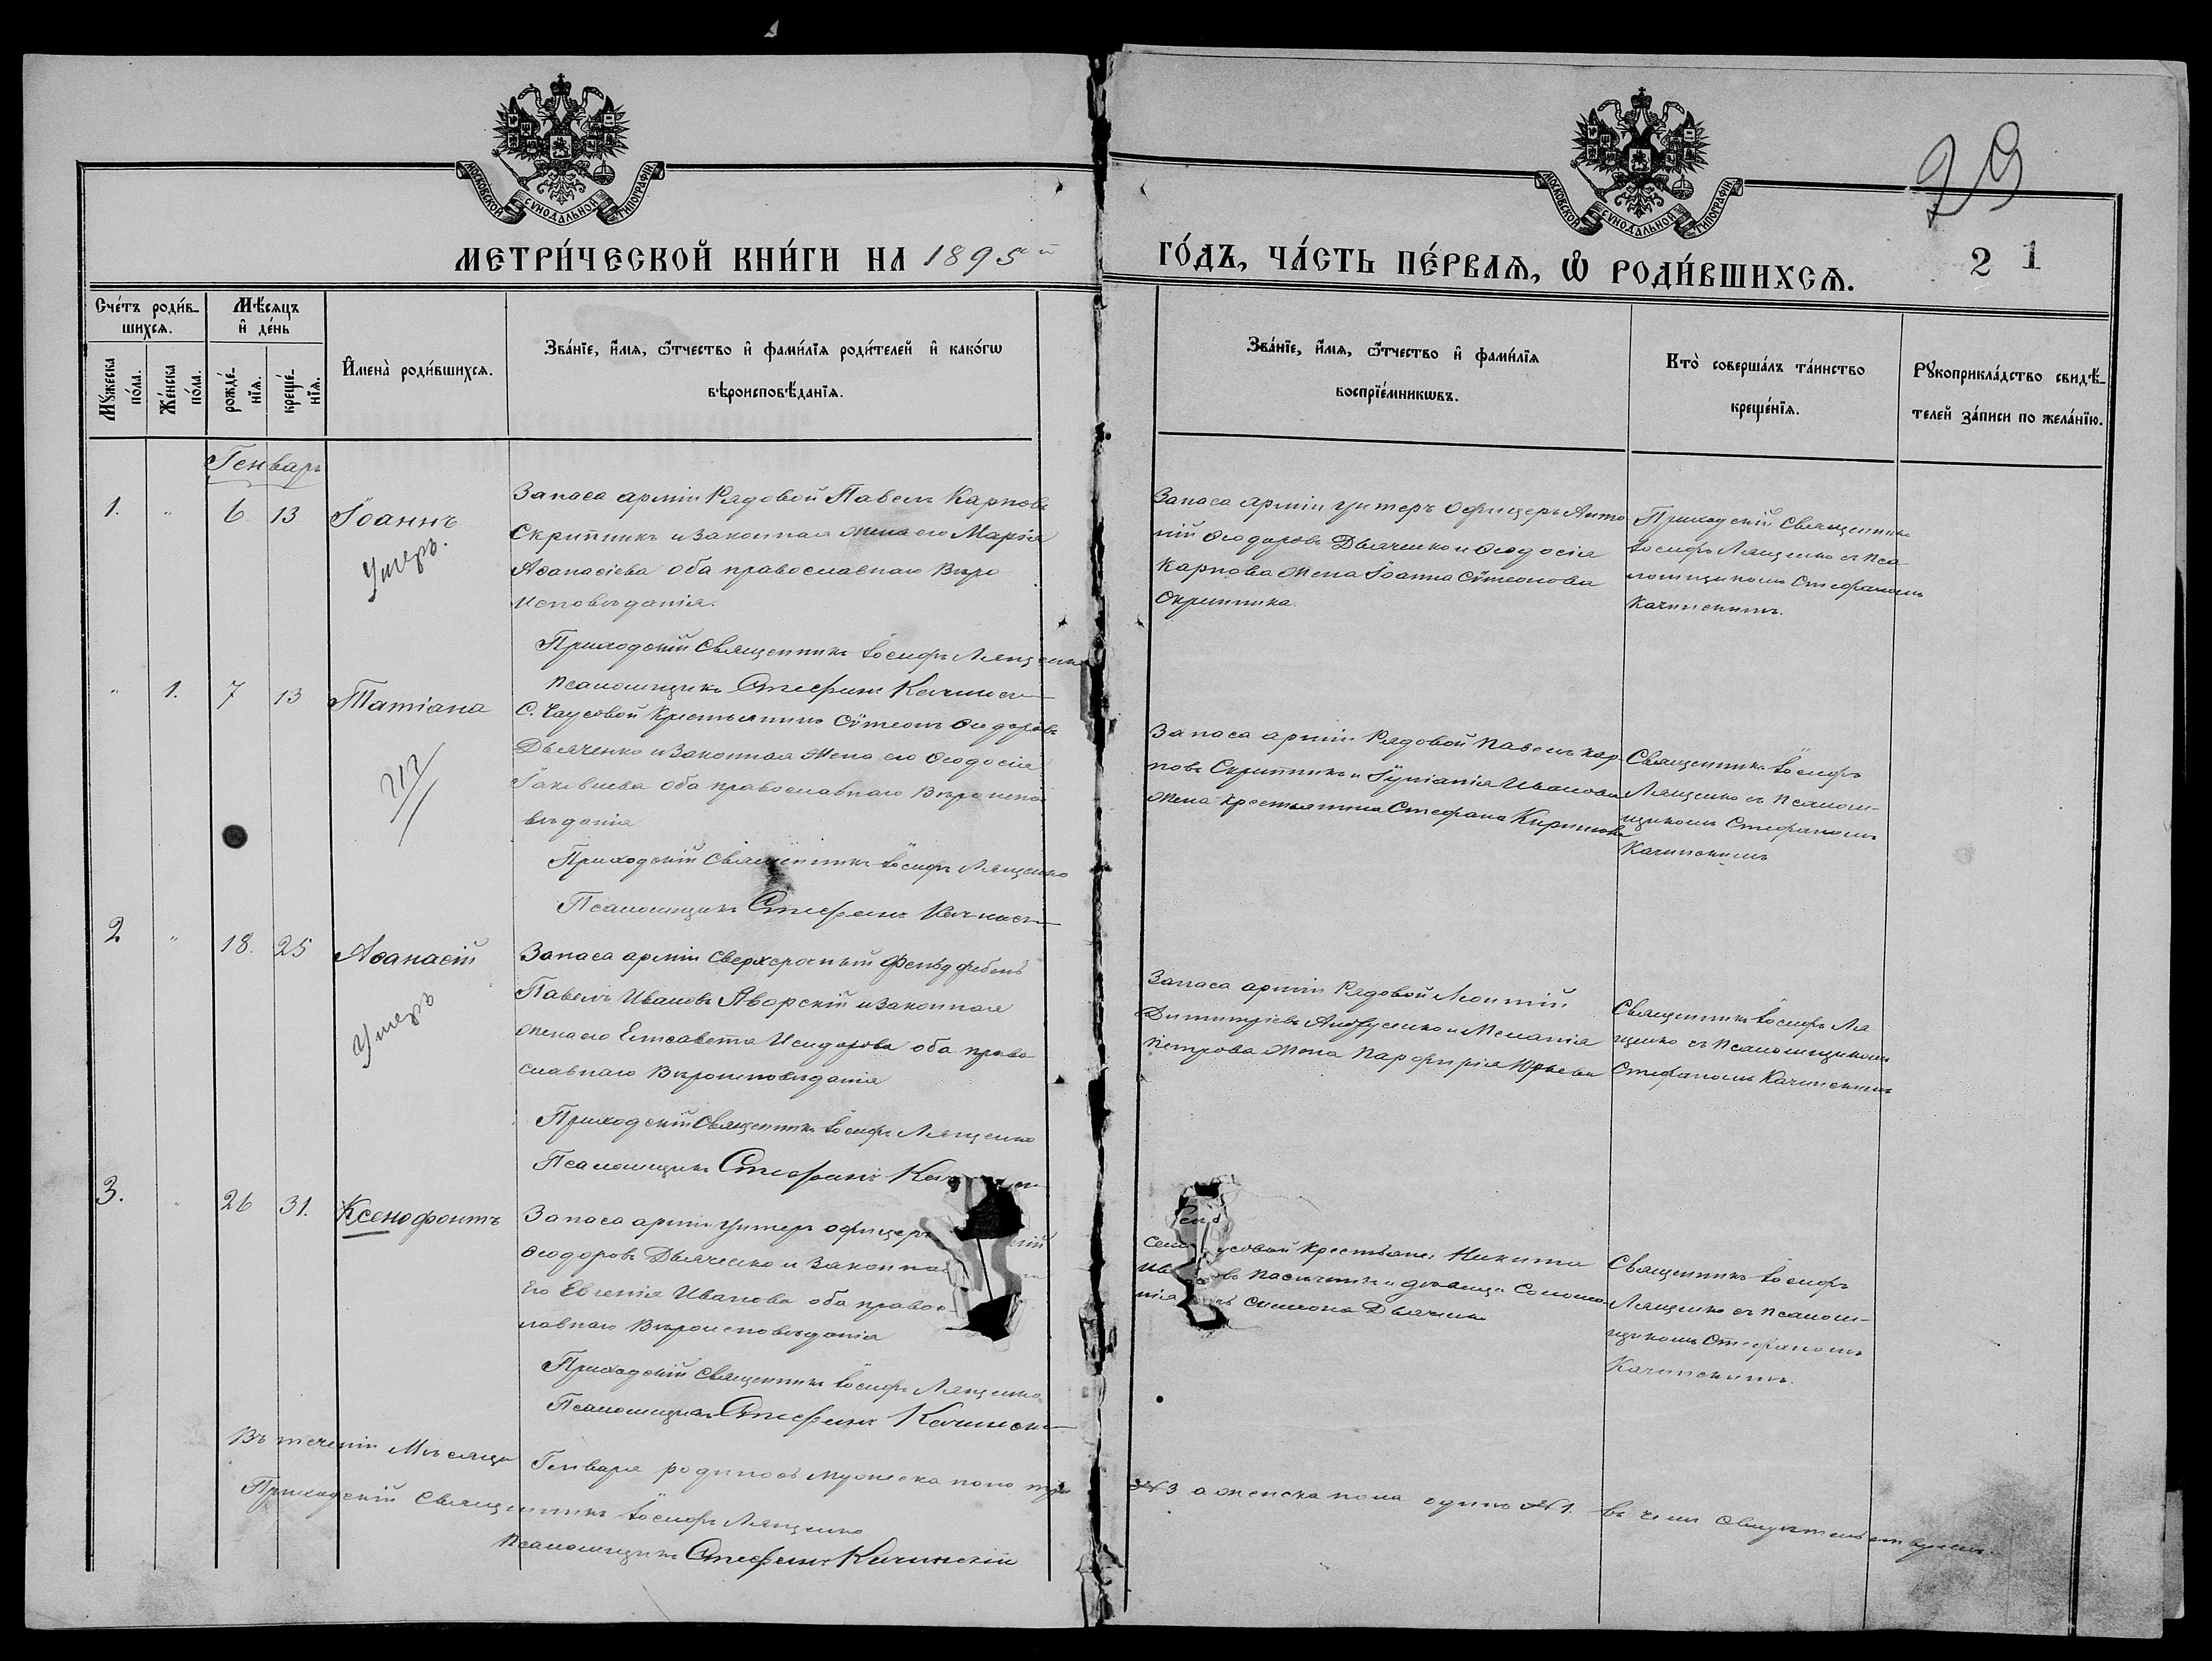 МОСКОВСКОЙ СѴНОДАЛЬНОЙ ТИПОГРАФІИ
МОСКОВСКОЙ СѴНОДАЛЬНОЙ ТИПОГРАФІИ
29
МЕТРИ́ЧЕСКОЙ КНИ́ГИ НА 1895й
ГО́ДЪ, ЧА́СТЬ ПЕ́РВАѦ, Ѡ РОДИ́ВШИХСѦ.
2 1
Сче́тъ роди́в-
шихсѧ.
Мꙋ́жеска по́ла.
Же́нска по́ла.
Мѣ́сѧцъ
и҆ де́нь
рожде́-нїѧ.
креще́-нїѧ.
И҆мена̀ роди́вшихсѧ.
Зва́нїе, и҆́мѧ, ѻ҆́тчество и҆ фами́лїѧ роди́телей и҆ како́гѡ
вѣроисповѣ́данїѧ.
Зва́нїе, и҆́мѧ, ѻ҆́тчество и҆ фами́лїѧ
воспрїе́мникѡвъ.
Кто̀ соверша́лъ та́инство
креще́нїѧ.
Рꙋкоприкла́дство свидѣ́-
телей за́писи по жела́нїю.
Генварь
1. " 6 13 Іоаннъ
Умеръ.
Запаса арміи Рядовой Павелъ Карповъ
Скрипникъ и законная жена его Марія
Аѳанасіева оба православнаго Вѣро
исповѣданія.
Приходскій Священникъ Іосифъ Лященко
Псаломщикъ Стефанъ Качинскій
Запаса арміи унтеръ офицеръ Анто
ній Ѳеодоровъ Дьяченко и Ѳеодосія
Карпова жена Іоанна Сѵмеонова
Скрипника.
Приходскій Священникъ
Іосифъ Лященко съ Пса-
ломщикомъ Стефаномъ
Качинскимъ.
" 1. 7 13 Татіана
С. Чаусовой крестьянинъ Сѵмеонъ Ѳеодоровъ
Дьяченко и законная жена его Ѳеодосія
Іаковлева оба православнаго Вѣроиспо
вѣданія
Приходскій Священникъ Іосифъ Лященко
Псаломщикъ Стефанъ Качинскій
Запаса арміи Рядовой Павелъ Кар
повъ Скрипникъ и Іуліанія Иванова
жена крестьянина Стефана
Священникъ Іосифъ
Лященко съ Псалом-
щикомъ Стефаномъ
Качинскимъ
2 " 18. 25 Аѳанасій
Умеръ
Запаса арміи сверхсрочный фельдфебель
Павелъ Ивановъ Яворскій и законная
жена его Елисавета Исидорова оба право
славнаго Вѣроисповѣданія
Приходскій Священникъ Іосифъ Лященко
Псаломщикъ Стефанъ
Запаса арміи Рядовой Леонтій
Димитріевъ Андрусенко и Меланія
Петрова жена Парфирія
Священникъ Іосифъ Ля
щенко съ Псаломщикомъ
Стефаномъ Качинскимъ
3. " 26 31. Ксенофонтъ
Запаса арміи унтеръ офицеръ
Ѳеодоровъ Дьяченко и законная
его Евгенія Иванова оба правос
лавнаго Вѣроисповѣданія
Приходскій Священникъ Іосифъ Лященко
Псаломщикъ Стефанъ Качинскій
крестьяне Никита
Пасичникъ и дѣвица Соломо
нія Симеона Дьяченко
Священникъ Іосифъ
Лященко съ Псалом-
щикомъ Стефаномъ
Качинскимъ.
Въ теченіи Мѣсяца Генваря родилось мужеска пола три
№ 3 а женска пола одинъ № 1. въ чемъ свидѣтельствуемъ.
Приходскій Священникъ Іосифъ Лященко
Псаломщикъ Стефанъ Качинскій